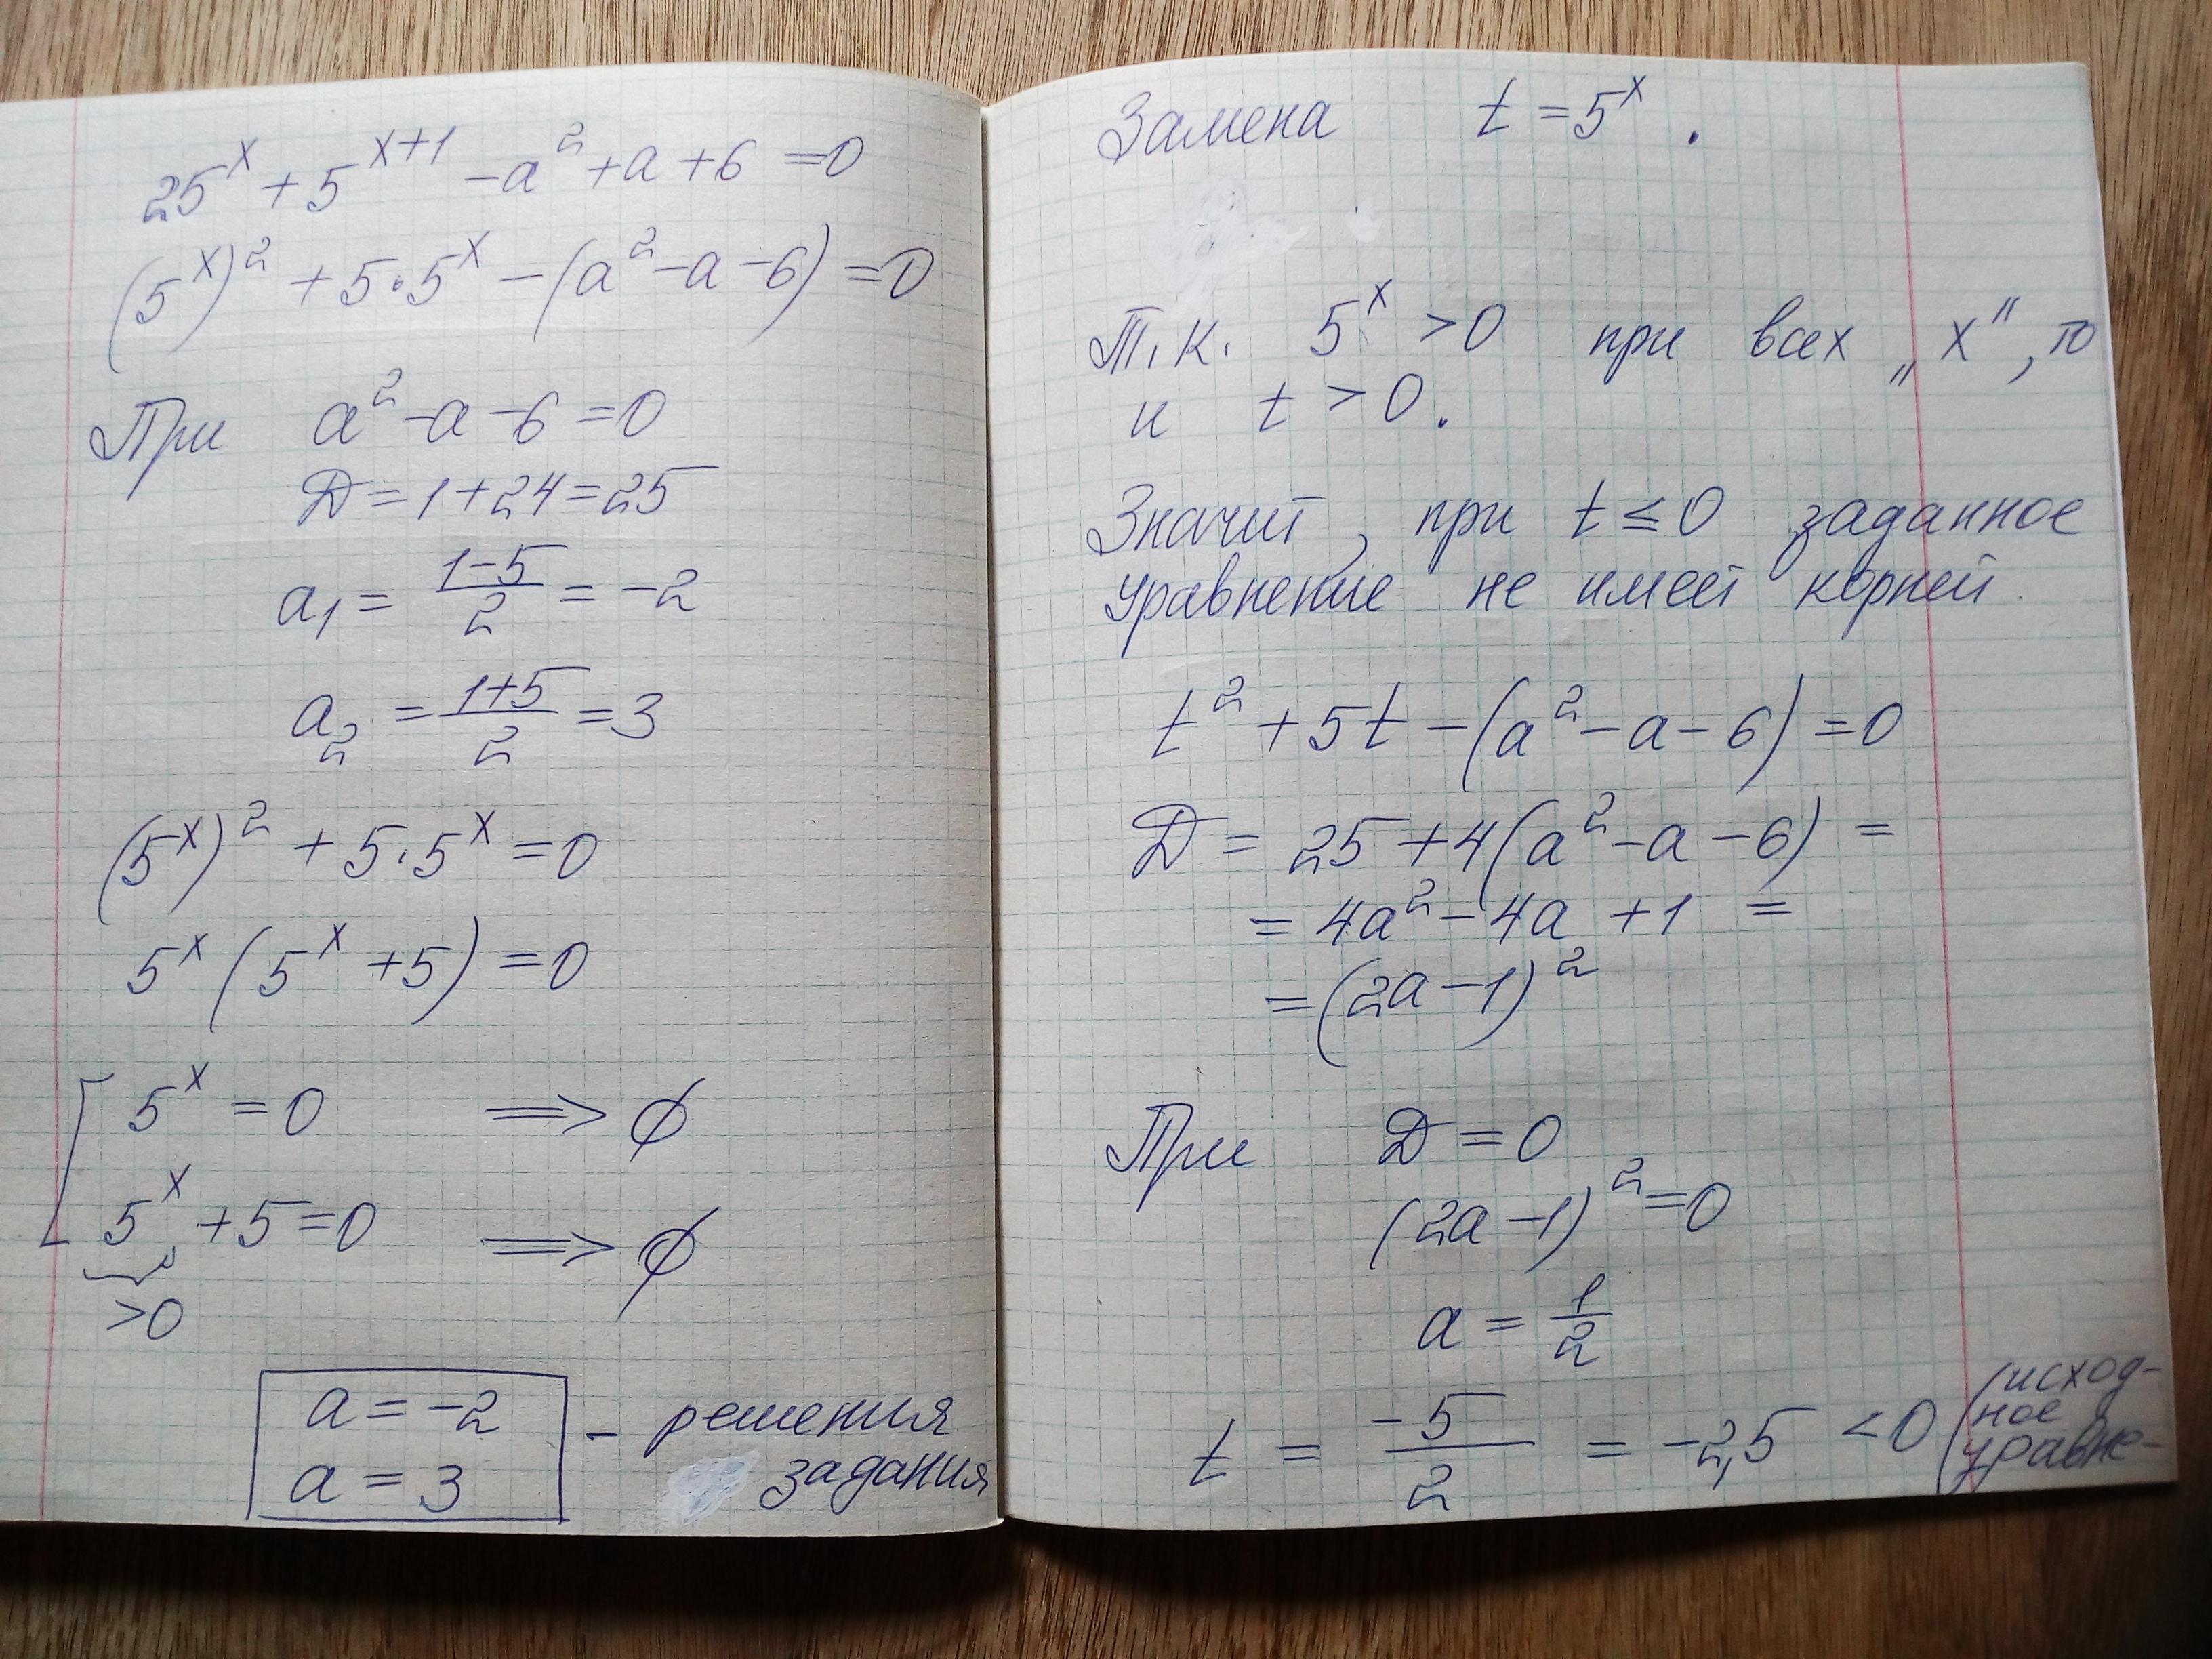 25^x + 5^{x+1} - a² + a + 6 = 0
(5^x)² + 5·5^x - (a² - a - 6) = 0
При a² - a - 6 = 0
D = 1 + 24 = 25
a₁ = (1-5)/2 = -2
a₂ = (1+5)/2 = 3
(5^x)² + 5·5^x = 0
5^x (5^x + 5) = 0
[ 5^x = 0 ⟹ ∅
5^x + 5 = 0 ⟹ ∅
>0
a = -2
a = 3
- решения
задания
Замена t = 5^x .
Т.к. 5^x > 0 при всех „x", то
и t > 0.
Значит, при t ≤ 0 заданное
уравнение не имеет корней.
t² + 5t - (a² - a - 6) = 0
D = 25 + 4(a² - a - 6) =
= 4a² - 4a + 1 =
= (2a - 1)²
При D = 0
(2a - 1)² = 0
a = 1/2
t = -5/2 = -2,5 < 0
(исход-
ное
уравне-